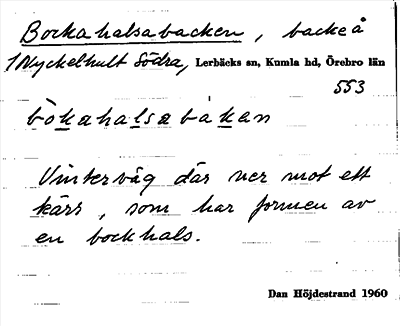 Bockahalsabacken, backe å
1 Nyckelhult Södra, Lerbäcks sn, Kumla hd, Örebro län
553
bòkahalsabakan
Vinterväg där ner mot ett
kärr, som har formen av
en bockhals.
Dan Höjdestrand 1960